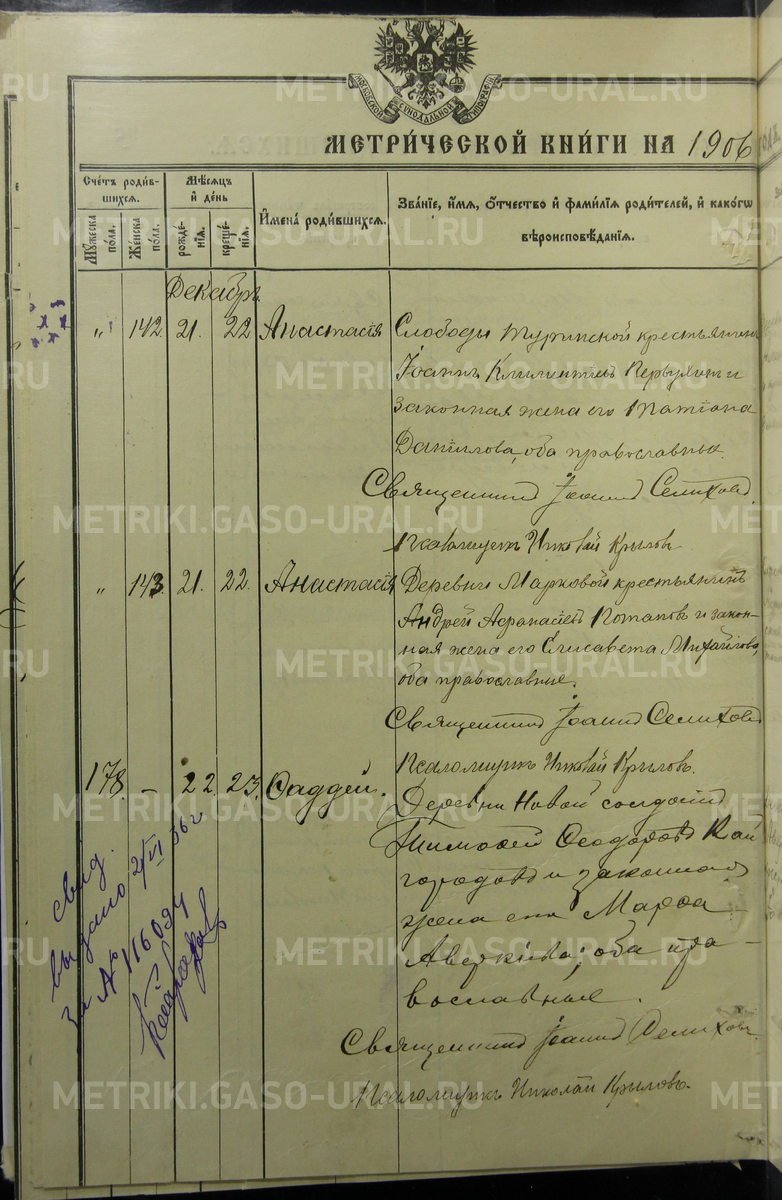 МОСКОВСКОЙ СѴНОДАЛЬНОЙ ТИПОГРАФІИ
МЕТРИ́ЧЕСКОЙ КНИ́ГИ НА 1906
Сче́тъ роди́вшихся.
Му́жеска по́ла.
Же́нска по́ла.
Мѣ́сяцъ и҆ де́нь
рожде́нїѧ.
креще́нїѧ.
И҆мена̀ роди́вшихся.
Зва́нїе, и҆́мѧ, ѻ҆́тчество и҆ фами́лїѧ роди́телей, и҆ како́гѡ
вѣроисповѣ́данїѧ.
Декабрь
„ 142 21. 22 Анастасія
Слободы Туринской крестьянинъ
Іоаннъ Климентіевъ Первухинъ и
законная жена его Татіана
Даніилова, оба православные.
Священникъ Іоаннъ Селиховъ
Псаломщикъ Николай Крыловъ
„ 143. 21. 22. Анастасія
Деревни Марковой крестьянинъ
Андрей Афанасіевъ Потаповъ и закон-
ная жена его Елисавета Михайлова,
оба православные.
Священникъ Іоаннъ Селиховъ
Псаломщикъ Николай Крыловъ.
178. – 22. 23. Ѳаддей.
Деревни Новой солдатъ
Тимофей Ѳеодоровъ Кай
городовъ и законная
жена его Марфа
Аверкіева; оба пра-
вославные.
Священникъ Іоаннъ Селиховъ
Псаломщикъ Николай Крыловъ.
свид.
выдано 2/VI 56 г
за № 116094
METRIKI.GASO-URAL.RU